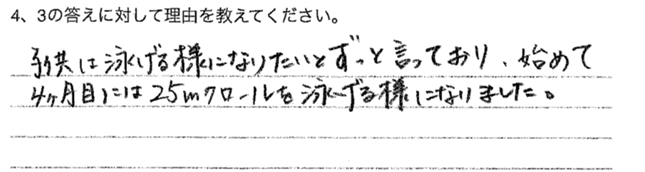 4、3の答えに対して理由を教えてください。
子供は泳げる様になりたいとずっと言っており、始めて
4ヶ月目には25mクロールを泳げる様になりました。